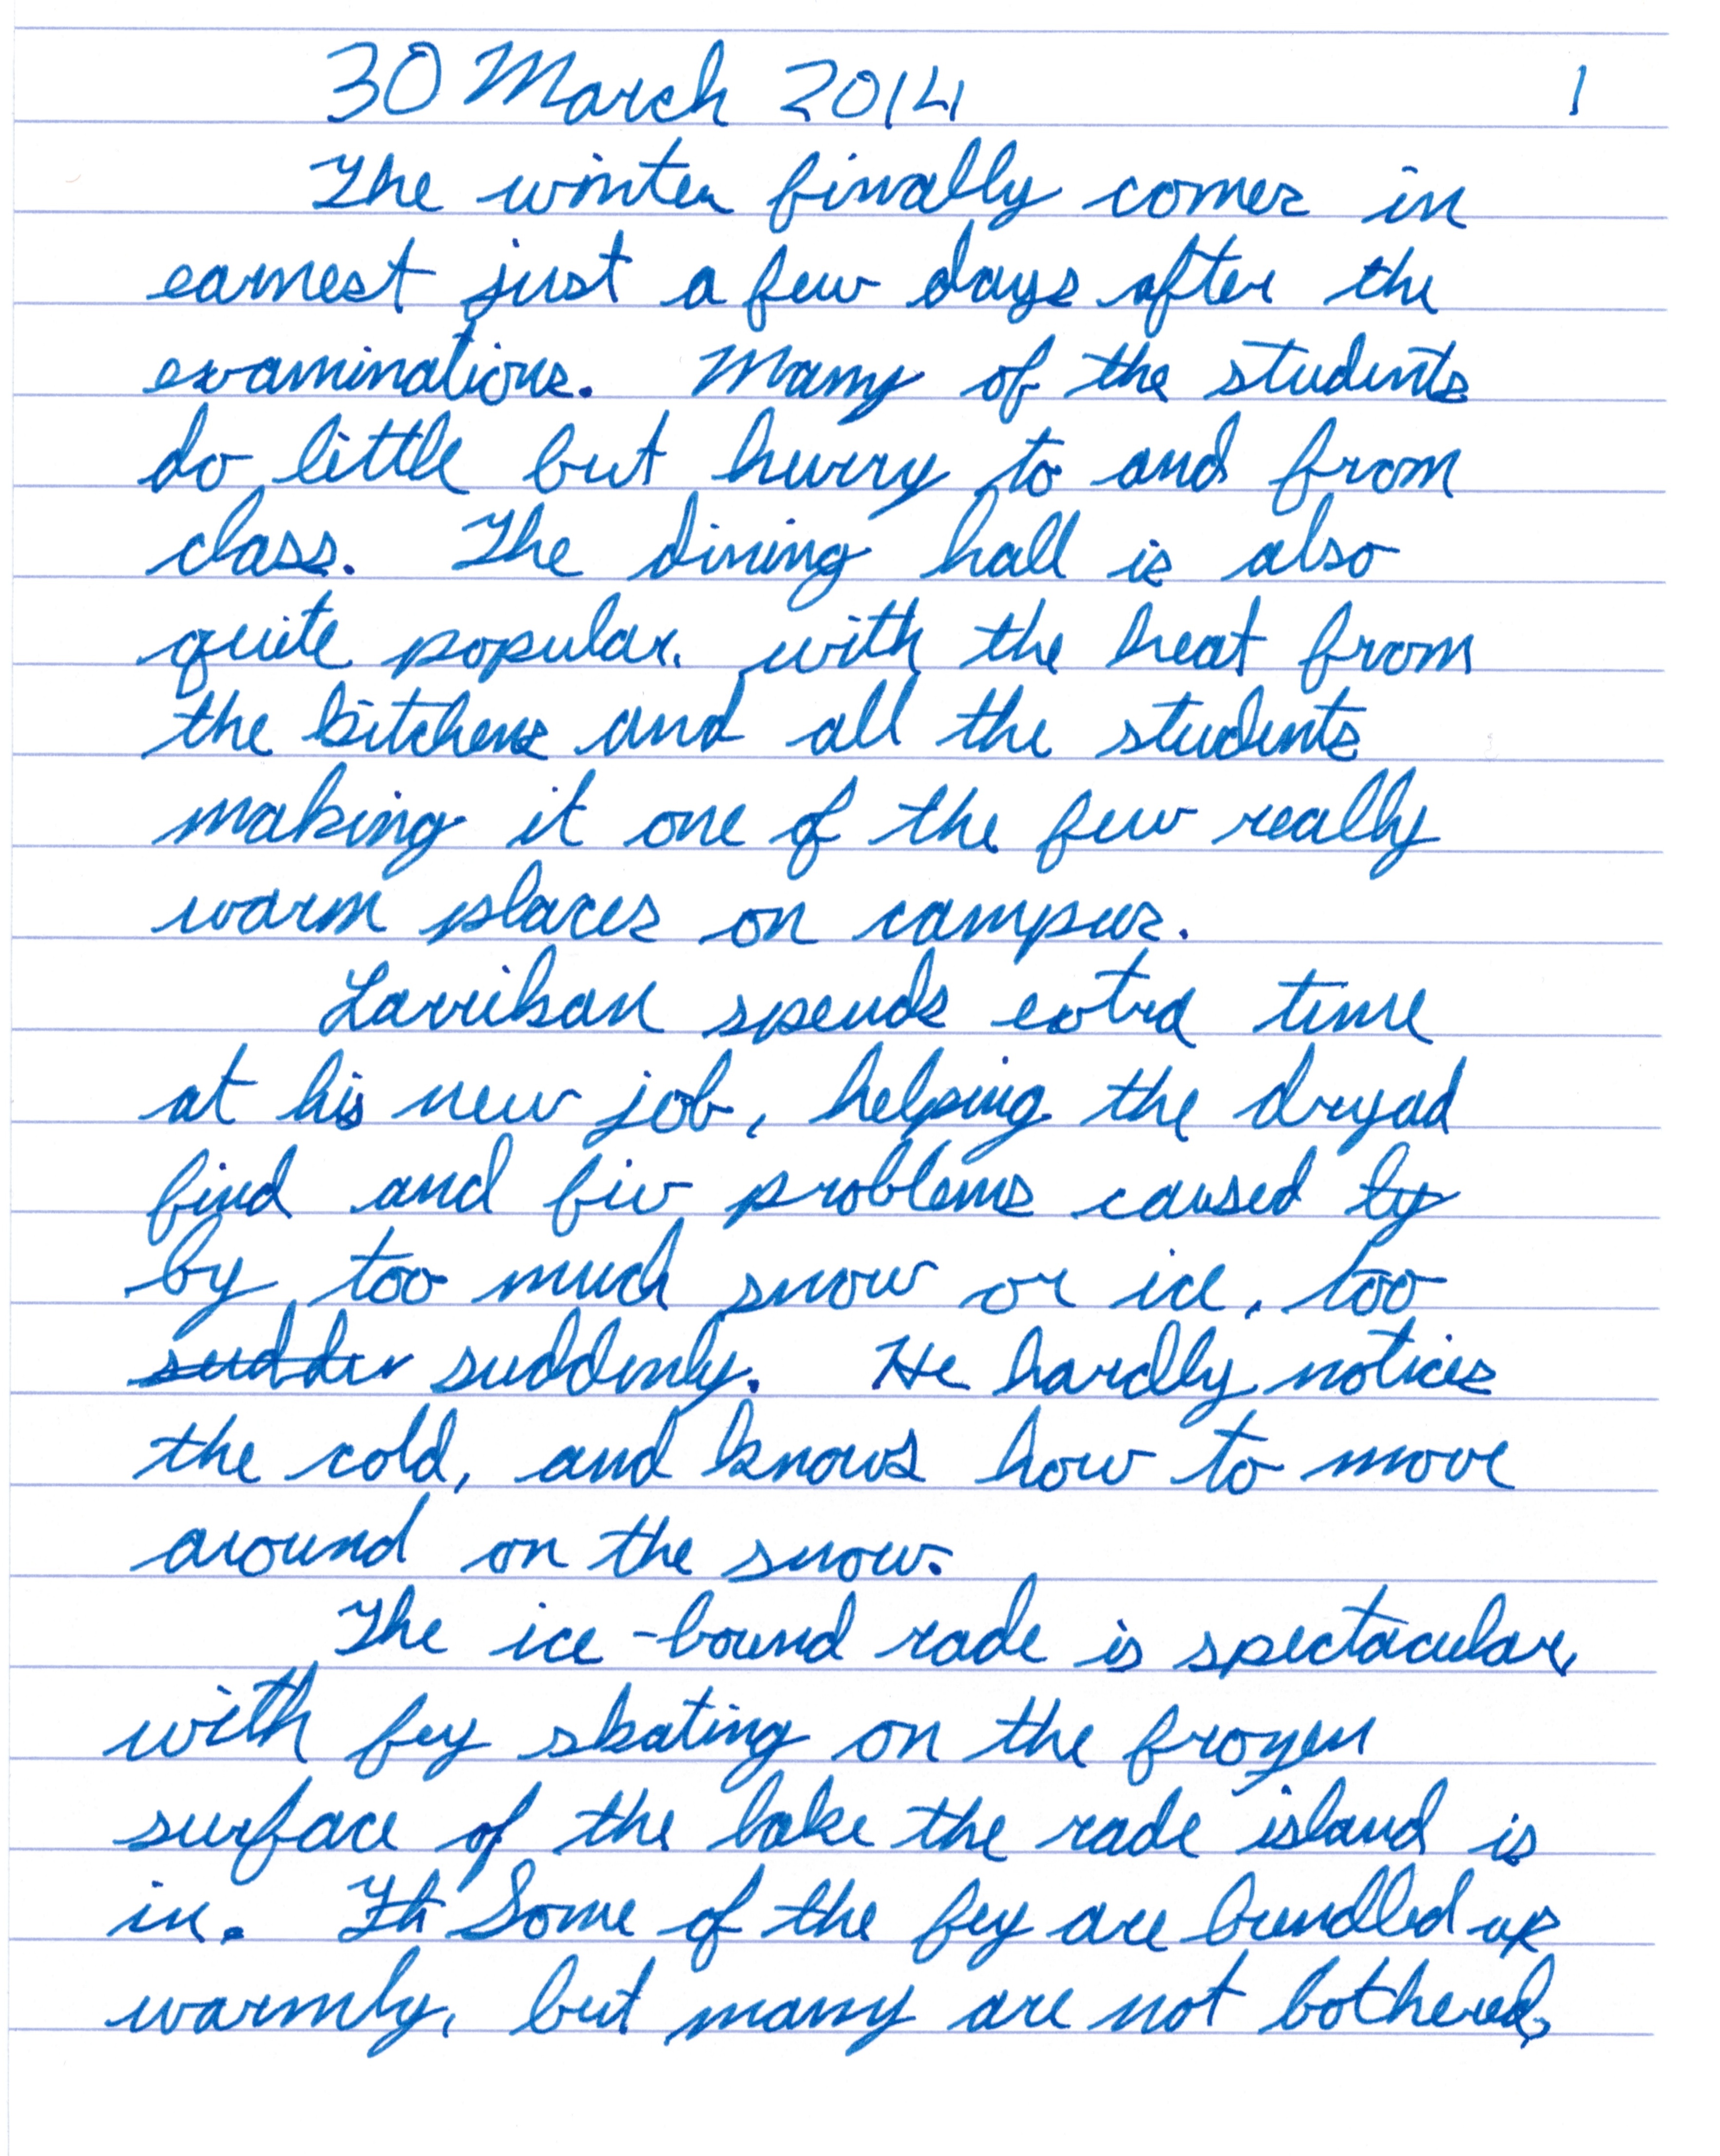 30 March 2014 1
The winter finally comes in
earnest just a few days after the
examinations. Many of the students
do little but hurry to and from
class. The dining hall is also
quite popular, with the heat from
the kitchens and all the students
making it one of the few really
warm places on campus.
Larrikan spends extra time
at his new job, helping the dryad
find and fix problems caused by
by too much snow or ice, too
sudden suddenly. He hardly notices
the cold, and knows how to move
around on the snow.
The ice-bound rade is spectacular,
with fey skating on the frozen
surface of the lake the rade island is
in. Th Some of the fey are bundled up
warmly, but many are not bothered,